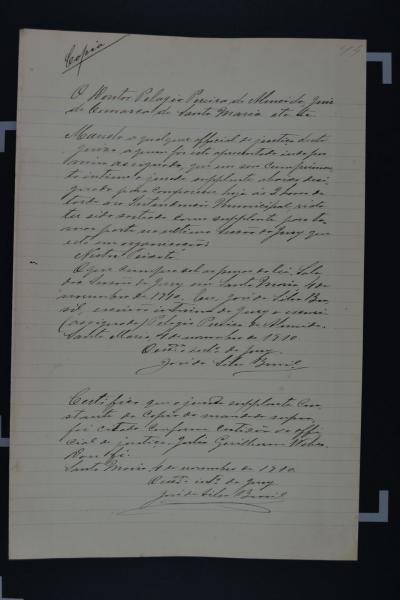 Copia
O Doutor Pelagio Pereira de Almeida, Juiz
de Comarca de Santa Maria etc etc
Mando a qualquer official de justiça deste
juizo a quem for este apresentado indo por
mim assignado, que em seu cumprimen-
to intime o jurado supplente abaixo desi-
gnado para comparecer hoje ás 2 horas da
tarde na Intendencia Municipal, visto
ter sido sorteado como supplente para to-
mar parte na ultima sessão do Jury que
está em organisação:
Nestor Peixoto
O que cumpra sob as penas da lei. Sala
das Sessões do Jury em Santa Maria 4 de
novembro de 1910. Eu, José da Silva Bra-
sil, escrivão interino do Jury o escrevi
(assignado) Pelagio Pereira de Almeida.
Santa Maria, 4 de novembro de 1910.
O escrᵐ intº do Jury.
José da Silva Brasil
Certifico que o jurado supplente con-
stante da copia do mandado supra,
foi citado conforme certidão do offi-
cial de justiça, Julio Guilherme Weber.
Dou fé.
Santa Maria 4 de novembro de 1910.
O escrᵐ intº do Jury
José da Silva Brasil